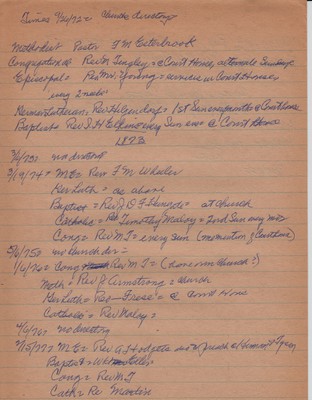 Times 9/26/72 = Church directory
Methodist Pastor F M Esterbrook
Congregational Rev M Tingley = @ Court House, alternate Sundays
Episcopal = Rev Mr. Young = services in Court House
every 2 weeks
German Lutheran, Rev Hilgendorf = 1st Sun every month @ Courthouse
Baptist Rev S H every Sun eve @ Court House
1873
no directory
2/19/74 = M E = Rev F M Wheeler
Ger Luth = as above
Baptist = Rev J D F = at church
Catholic = Timothy Maloy = 2nd Sun every mo
Cong = Rev M T = every Sun (mention of Courthouse)
5/6/75 = no church dir =
1/6/76 = Cong Rev M T = (have own church?)
Meth = Rev J Armstrong = church
Ger Luth = Rev Frese = @ Court House
Catholic = Rev Maloy =
4/6/76 no directory
2/15/77 = M E = Rev A Hodgetts
Baptist =
Cong = Rev M T
Cath = Re